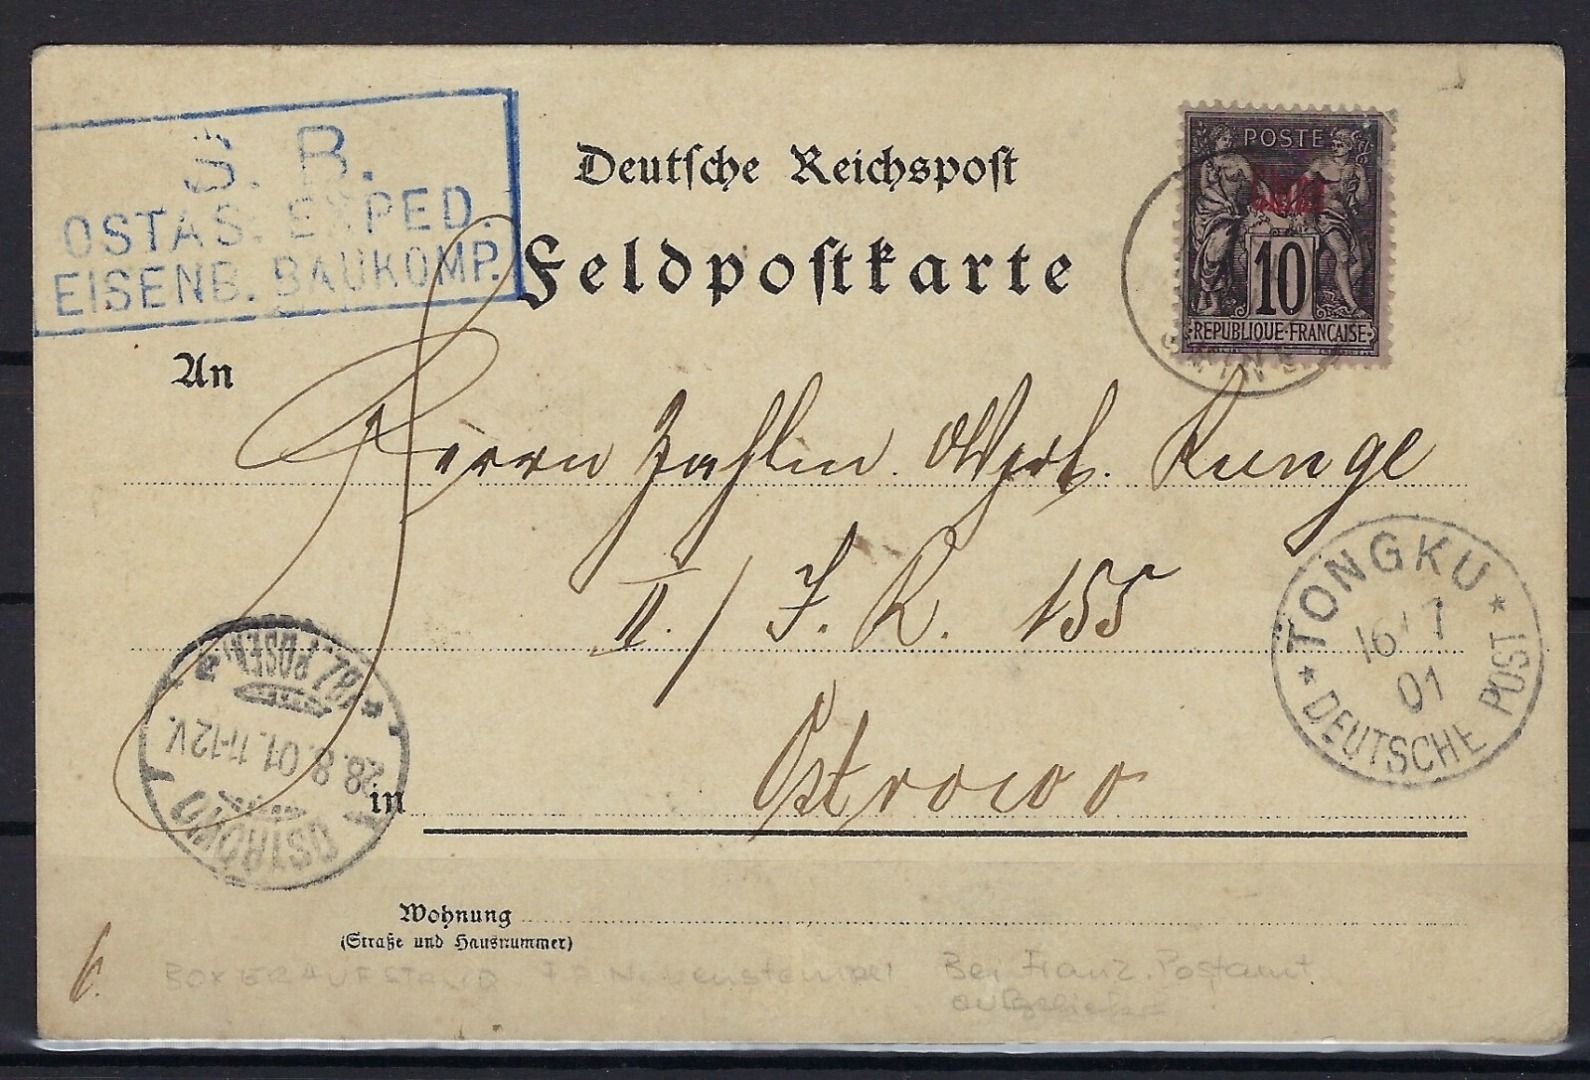 S. B.
OSTAS. EXPED.
EISENB. BAUKOMP.
Deutsche Reichspost
Feldpostkarte
POSTE
Chine
10
REPUBLIQUE-FRANCAISE
An
Herrn Zahlm. Runge
II./ J. R. 155
in Ostrowo
TONGKU
16/7
01
DEUTSCHE POST
OSTROWO
28.8.01.11-12V.
(BZ. POSEN) a
Wohnung
(Straße und Hausnummer)
6.
BOXERAUFSTAND Bei Franz. Postamt
aufgeliefert